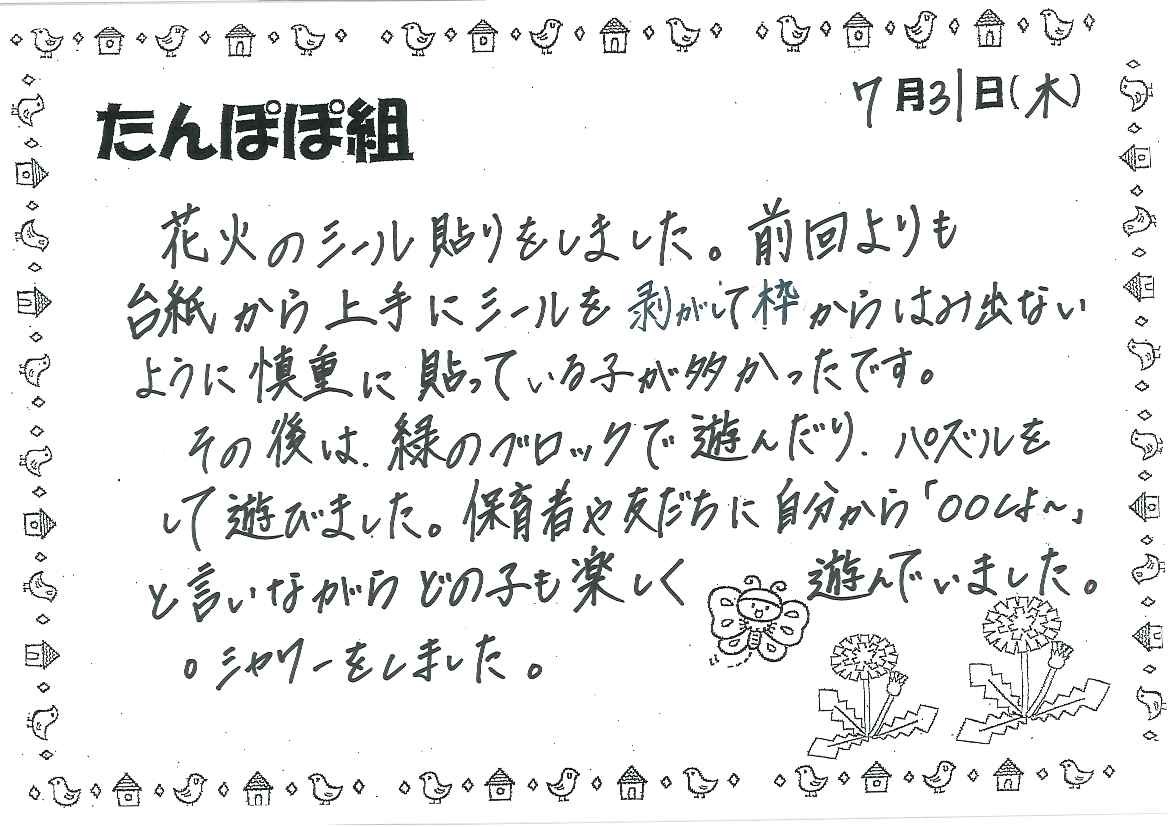 7月31日(木)
たんぽぽ組
花火のシール貼りをしました。前回よりも
台紙から上手にシールを剥がして枠からはみ出ない
ように慎重に貼っている子が多かったです。
その後は、緑のブロックで遊んだり、パズルを
して遊びました。保育者や友だちに自分から「○○しよ〜」
と言いながらどの子も楽しく遊んでいました。
。シャワーをしました。